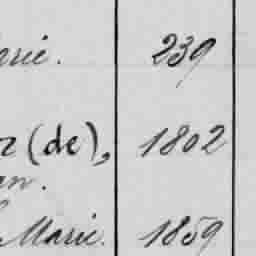 arie. 239
(de), 1802
an.
Marie. 1859